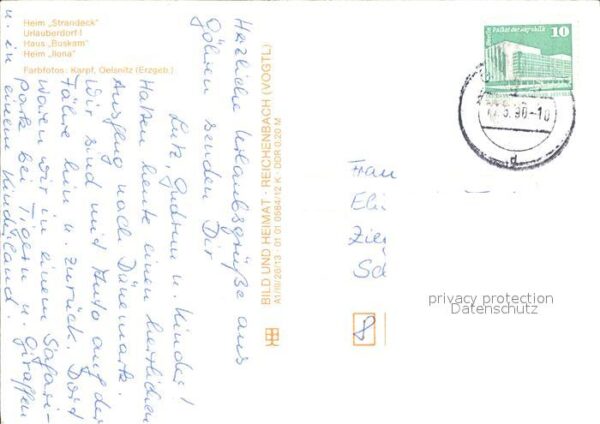 Heim „Strandeck"
Urlauberdorf I
Haus „Buskam"
Heim „Ilona"
Farbfotos: Karpf, Oelsnitz (Erzgeb.)
Herzliche Urlaubsgrüße aus
Göhren senden Dir
Lutz, Gudrun u. Kinder!
Hatten heute einen herrlichen
Ausflug nach Dänemark.
Wir sind mit Auto auf der
Fähre hin u. zurück. Dort
waren wir in einem Safari-
park bei Tigern u. Giraffen
u. in einem Kinderland.
BILD UND HEIMAT · REICHENBACH (VOGTL)
A1/III/26/13 01 01 0564/12 K · DDR 0,20 M
10
90-10
d
Frau
Eli
Zie
Sc
8
privacy protection
Datenschutz